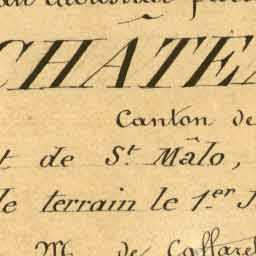 CHÂTE
Canton de
t de St. Mâlo,
le terrain le 1.er J
M de Caffarel